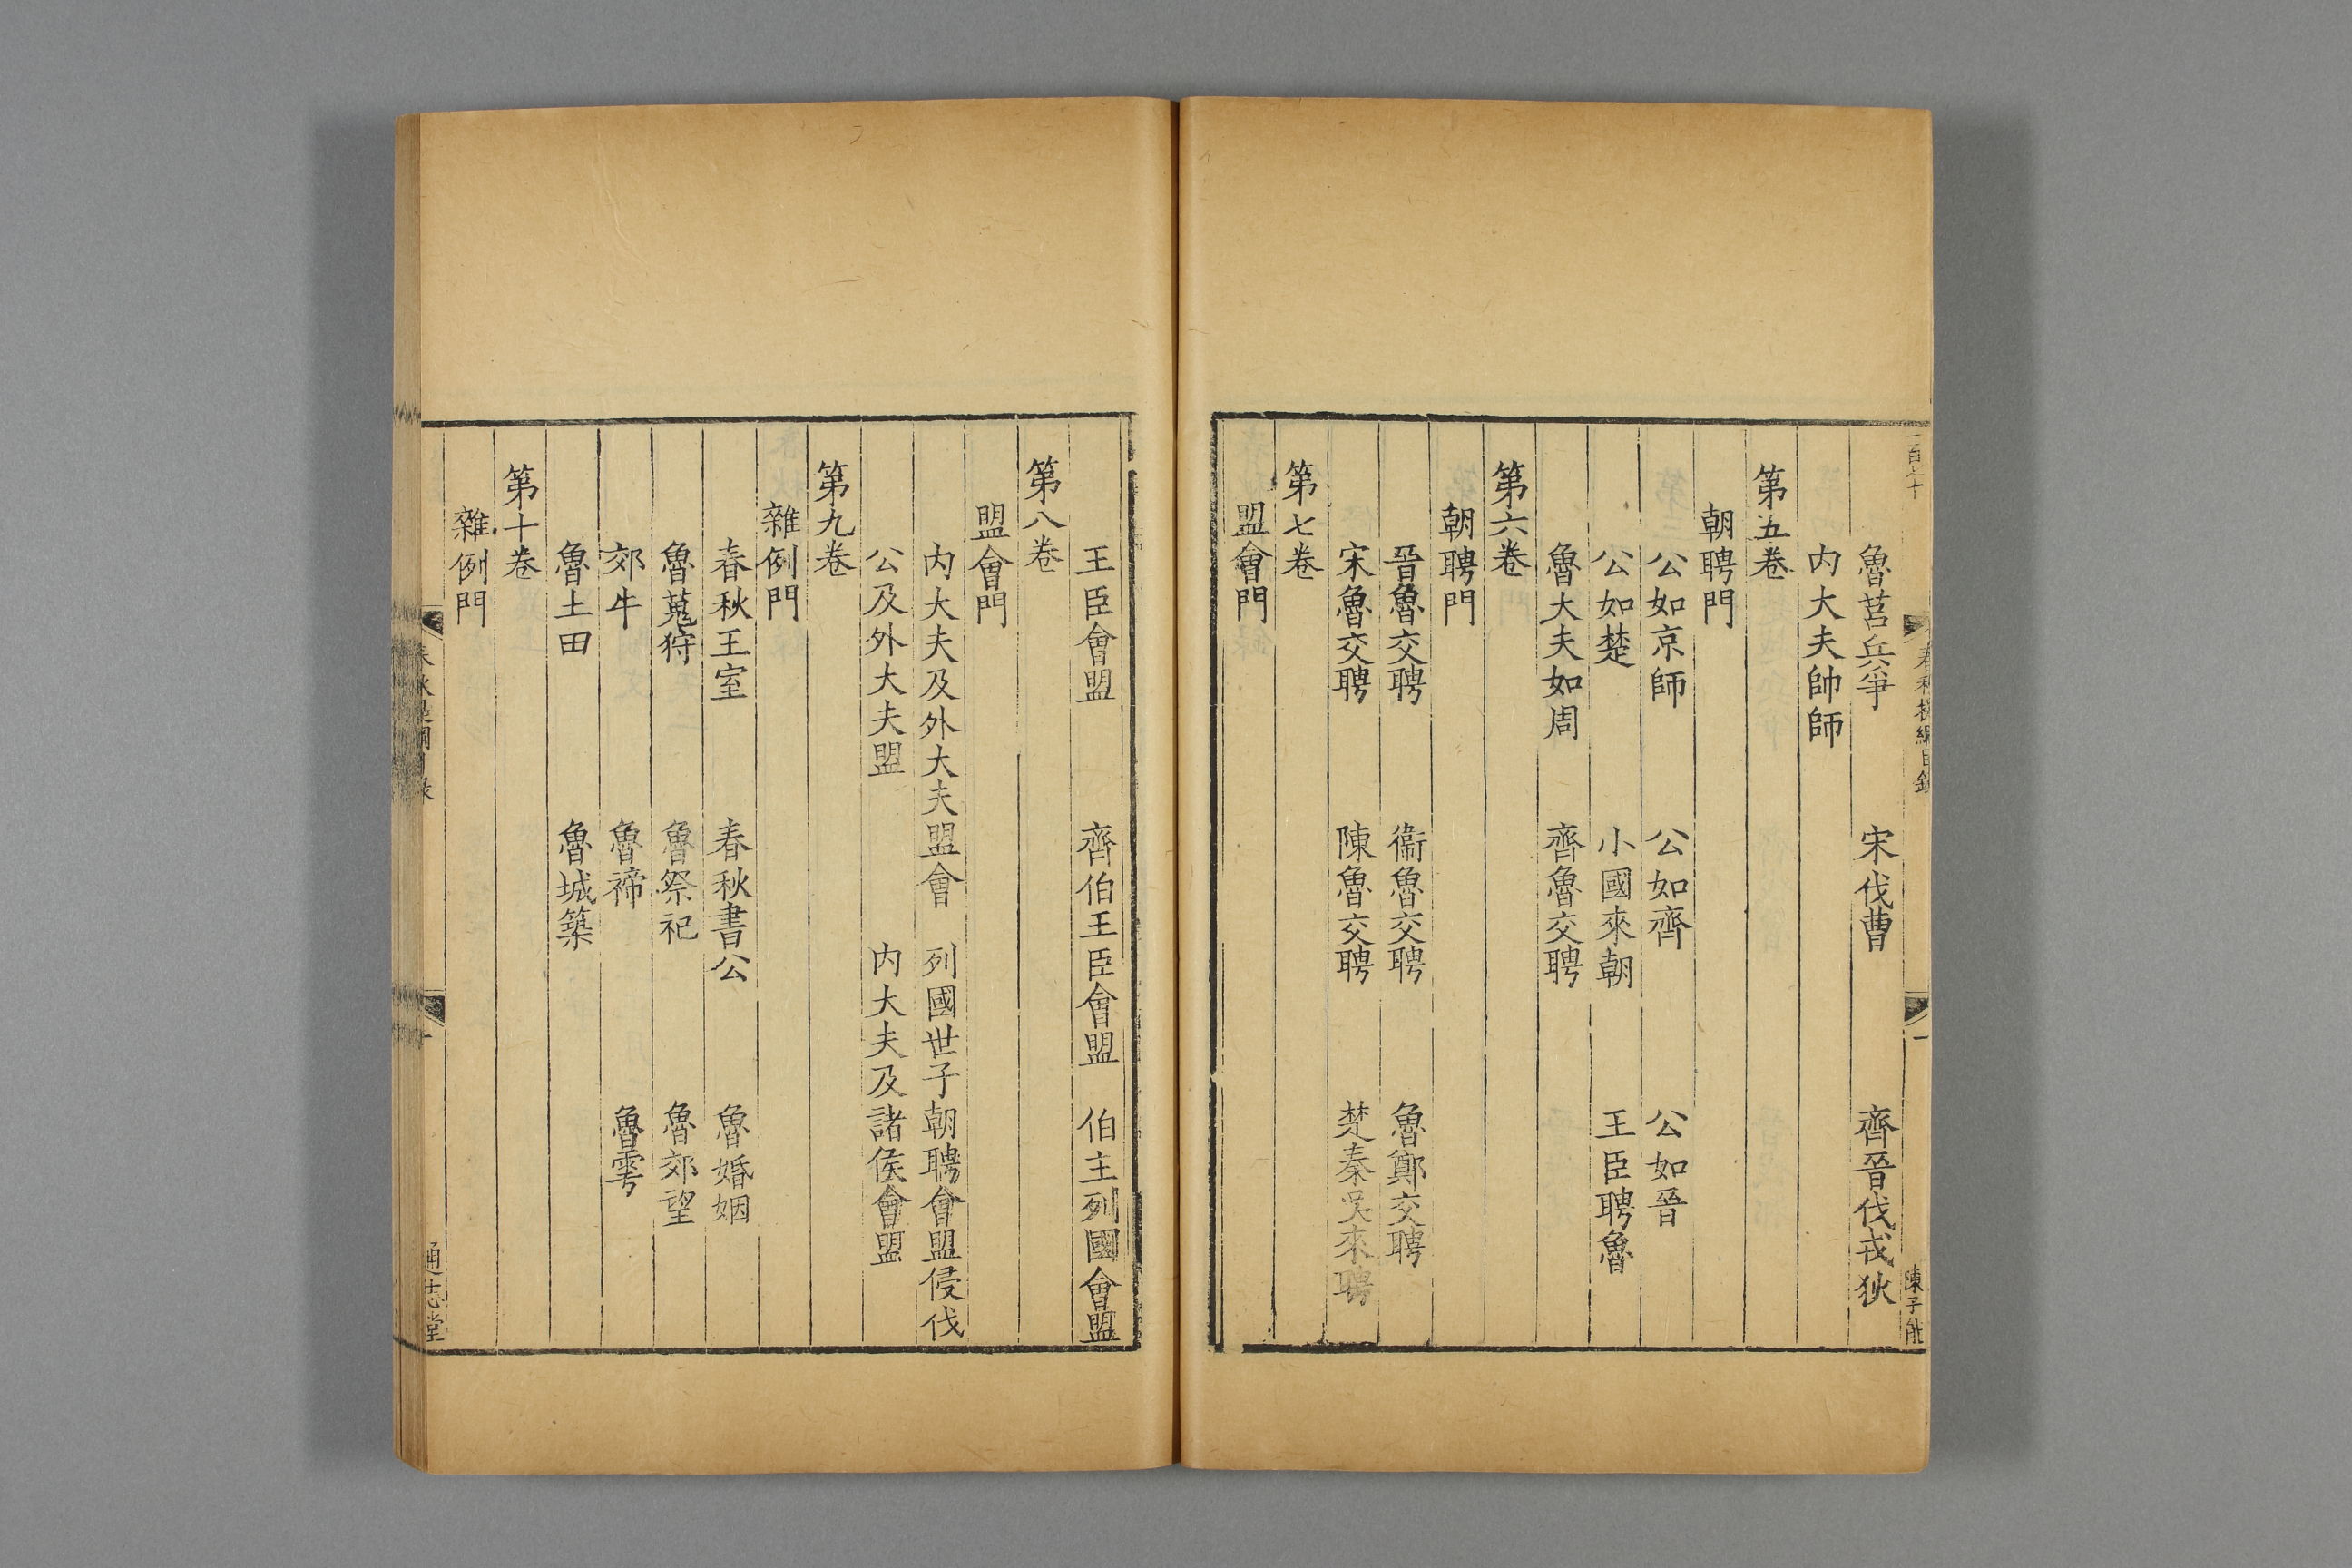 魯莒兵爭 宋伐曹 齊晉伐戎狄
内大夫帥師
第五卷
朝聘門
公如京師 公如齊 公如晉
公如楚 小國來朝 王臣聘魯
魯大夫如周 齊魯交聘
第六卷
朝聘門
晉魯交聘 衞魯交聘 魯鄭交聘
宋魯交聘 陳魯交聘 楚秦吳來聘
第七卷
盟會門
王臣會盟 齊伯王臣會盟 伯主列國會盟
第八卷
盟會門
内大夫及外大夫盟會 列國世子朝聘會盟侵伐
公及外大夫盟 内大夫及諸侯會盟
第九卷
雜例門
春秋王室 春秋書公 魯婚姻
魯蒐狩 魯祭祀 魯郊望
郊牛 魯禘 魯雩
魯土田 魯城築
第十卷
雜例門
春秋提綱目録 一 通志堂